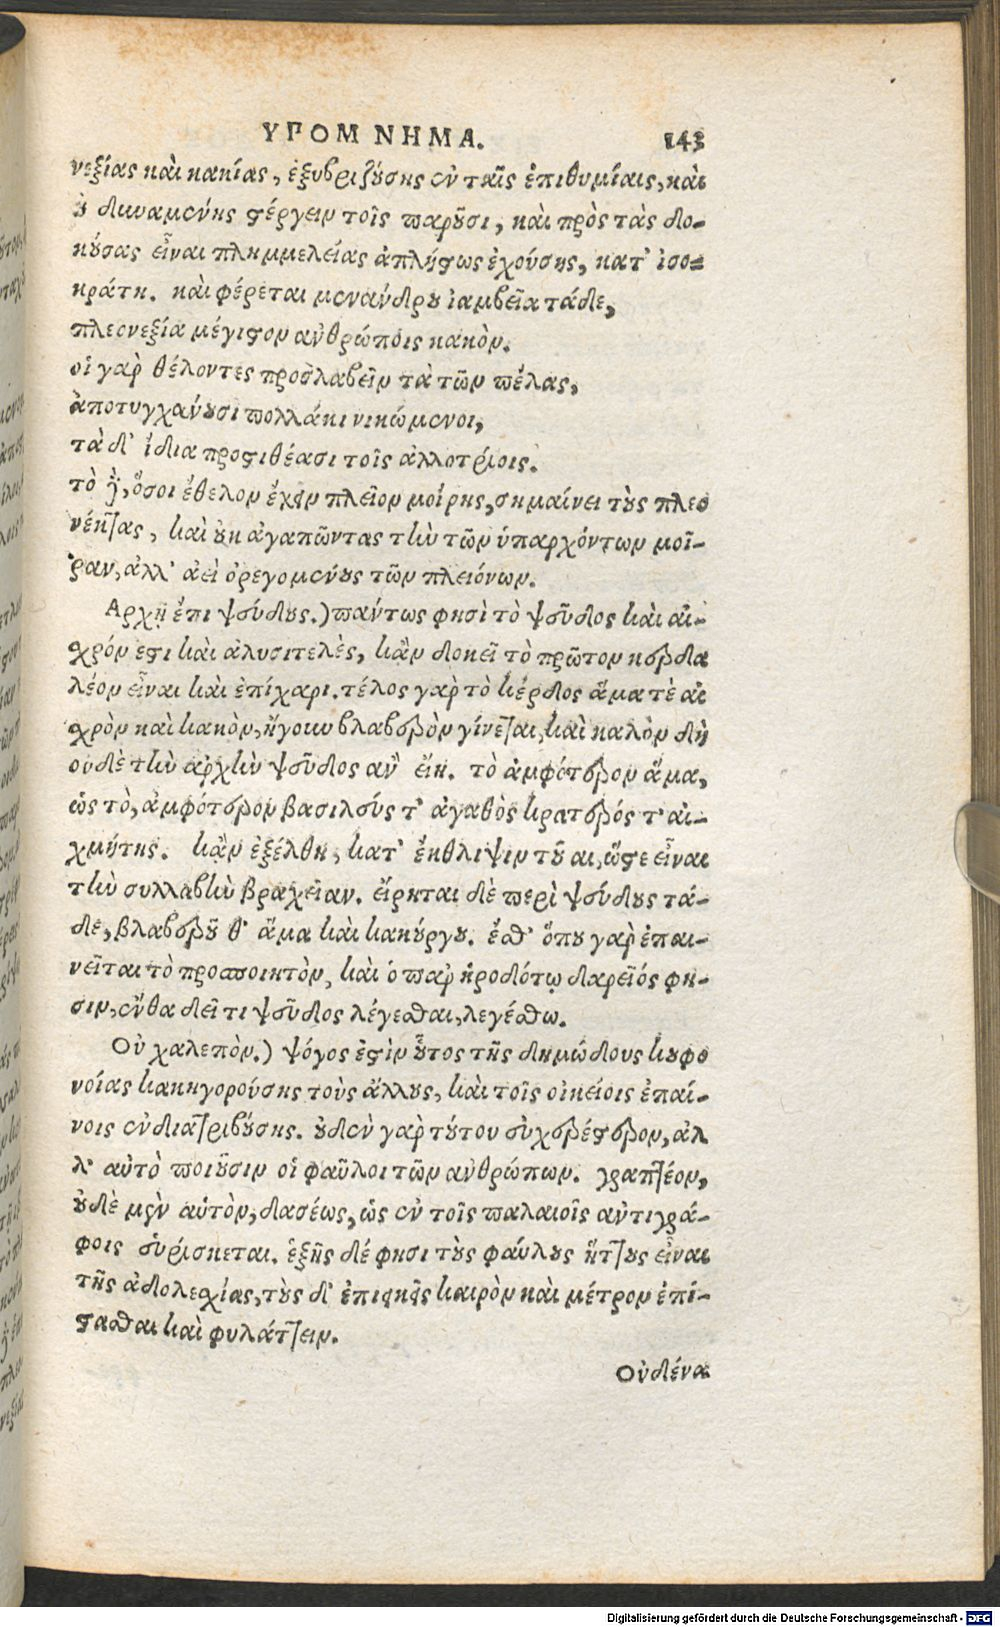 ΥΠΟΜΝΗΜΑ. 143
νεξίας καὶ κακίας, ἐξυβριζούσης ἐν ταῖς ἐπιθυμίαις, καὶ
οὐ δυναμένης στέργειν τοῖς παροῦσι, καὶ πρὸς τὰς δο-
κούσας εἶναι πλημμελείας ἀπλήστως ἐχούσης, κατ' ἰσο-
κράτη. καὶ φέρεται μενάνδρου ἰαμβεῖα τάδε,
πλεονεξία μέγιστον ἀνθρώποις κακὸν.
οἱ γὰρ θέλοντες προσλαβεῖν τὰ τῶν πέλας,
ἀποτυγχάνουσι πολλάκι νικώμενοι,
τὰ δ' ἴδια προστιθέασι τοῖς ἀλλοτρίοις.
τὸ δὲ, ὅσοι ἔθελον ἔχειν πλεῖον μοίρης, σημαίνει τοὺς πλεο
νέκτας, καὶ οὐκ ἀγαπῶντας τὴν τῶν ὑπαρχόντων μοῖ-
ραν, ἀλλ' ἀεὶ ὀρεγομένους τῶν πλειόνων.
Αρχῇ ἔπι ψεύδους.) πάντως φησὶ τὸ ψεῦδος καὶ αἰ-
χρόν ἐστι καὶ ἀλυσιτελὲς, κἂν δοκεῖ τὸ πρῶτον κερδα
λέον εἶναι καὶ ἐπίχαρι. τέλος γὰρ τὸ κέρδος ἅμα τὲ αἰ
χρὸν καὶ κακὸν, ἤγουν βλαβερὸν γίνεται, καὶ καλὸν δὴ
οὐδὲ τὴν ἀρχὴν ψεῦδος ἂν εἴη. τὸ ἀμφότερον ἅμα,
ὡς τὸ, ἀμφότερον βασιλεύς τ' ἀγαθὸς κρατερός τ' αἰ-
χμήτης. κἂν ἐξέλθῃ, κατ' ἔκθλιψιν τοῦ αι, ὥστε εἶναι
τὴν συλλαβὴν βραχεῖαν. εἴρηται δὲ περὶ ψεύδους τά-
δε, βλαβεροῦ θ' ἅμα καὶ κακούργου. ἔσθ' ὅπου γὰρ ἐπαι-
νεῖται τὸ προσποιητὸν, καὶ ὁ παρ' ἡροδότῳ δαρεῖός φη-
σιν, ἔνθα δεῖ τι ψεῦδος λέγεσθαι, λεγέσθω.
Οὐ χαλεπὸν.) ψόγος ἐστὶν οὗτος τῆς δημώδους κουφο
νοίας κακηγορούσης τοὺς ἄλλους, καὶ τοῖς οἰκείοις ἐπαί-
νοις ἐνδιατριβούσης. οὐδὲν γὰρ τούτου εὐχερέστερον, ἀλ
λ' αὐτὸ ποιοῦσιν οἱ φαῦλοι τῶν ἀνθρώπων. γραπτέον,
οὐδὲ μὲν αὑτὸν, δασέως, ὡς ἐν τοῖς παλαιοῖς ἀντιγρά-
φοις εὑρίσκεται. ἑξῆς δέ φησι τοὺς φαύλους ἥττους εἶναι
τῆς ἀδολεσχίας, τοὺς δ' ἐπιεικεῖς καιρὸν καὶ μέτρον ἐπί-
στασθαι καὶ φυλάττειν.
Οὐδένα
Digitalisierung gefördert durch die Deutsche Forschungsgemeinschaft - DFG